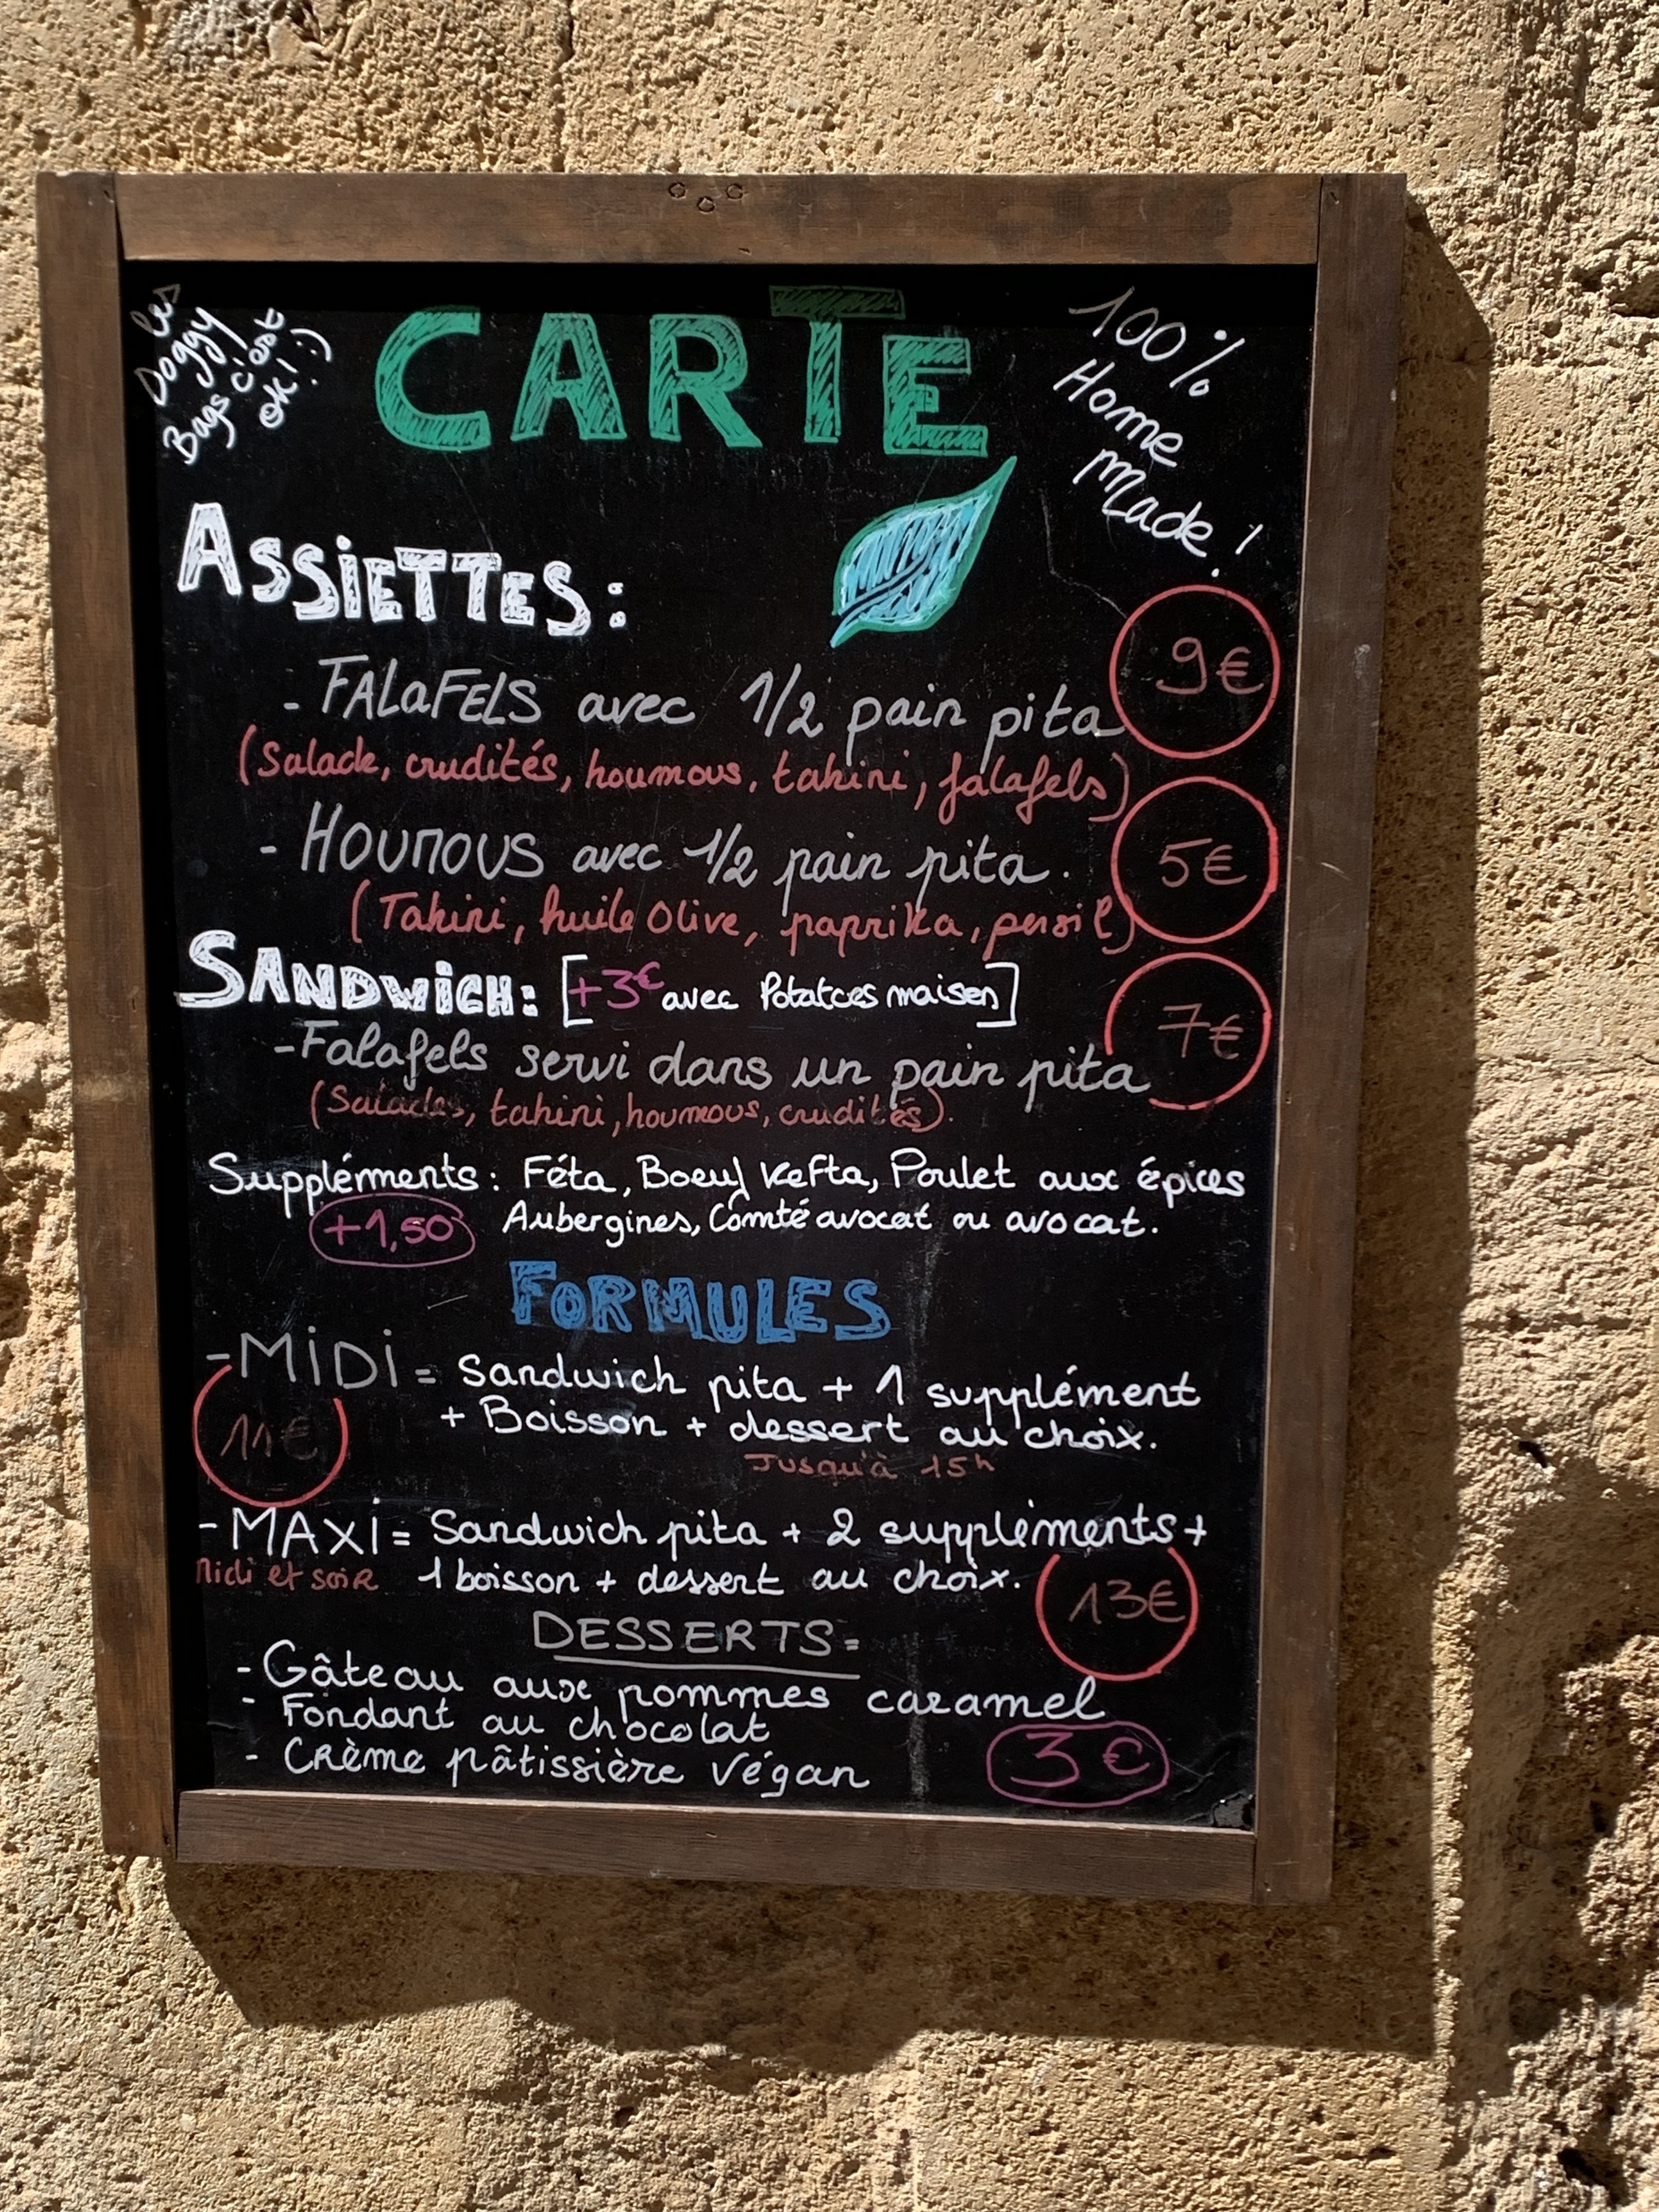 les
Doggy
Bags c'est
ok! :)
CARTE
100%
Home
Made!
ASSIETTES:
- FALAFELS avec 1/2 pain pita 9€
(Salade, crudités, houmous, tahini, falafels)
- HOUMOUS avec 1/2 pain pita. 5€
(Tahini, huile Olive, paprika, persil)
SANDWICH: [+3€ avec Potatoes maison]
-Falafels servi dans un pain pita 7€
(Salades, tahini, houmous, crudités).
Suppléments: Féta, Boeuf Kefta, Poulet aux épices
+1,50 Aubergines, Comté avocat ou avocat.
FORMULES
-MIDI= Sandwich pita + 1 supplément
11€ + Boisson + dessert au choix.
Jusqu'à 15h
-MAXI= Sandwich pita + 2 suppléments +
Midi et soir 1 boisson + dessert au choix. 13€
DESSERTS=
- Gâteau aux pommes caramel
- Fondant au chocolat
- Crème pâtissière végan 3€